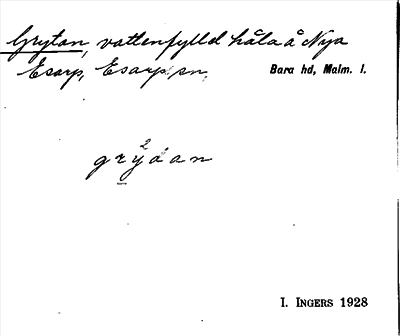 Grytan, vattenfylld håla å Nya
Esarp, Esarp sn,
Bara hd, Malm. l.
I. INGERS 1928